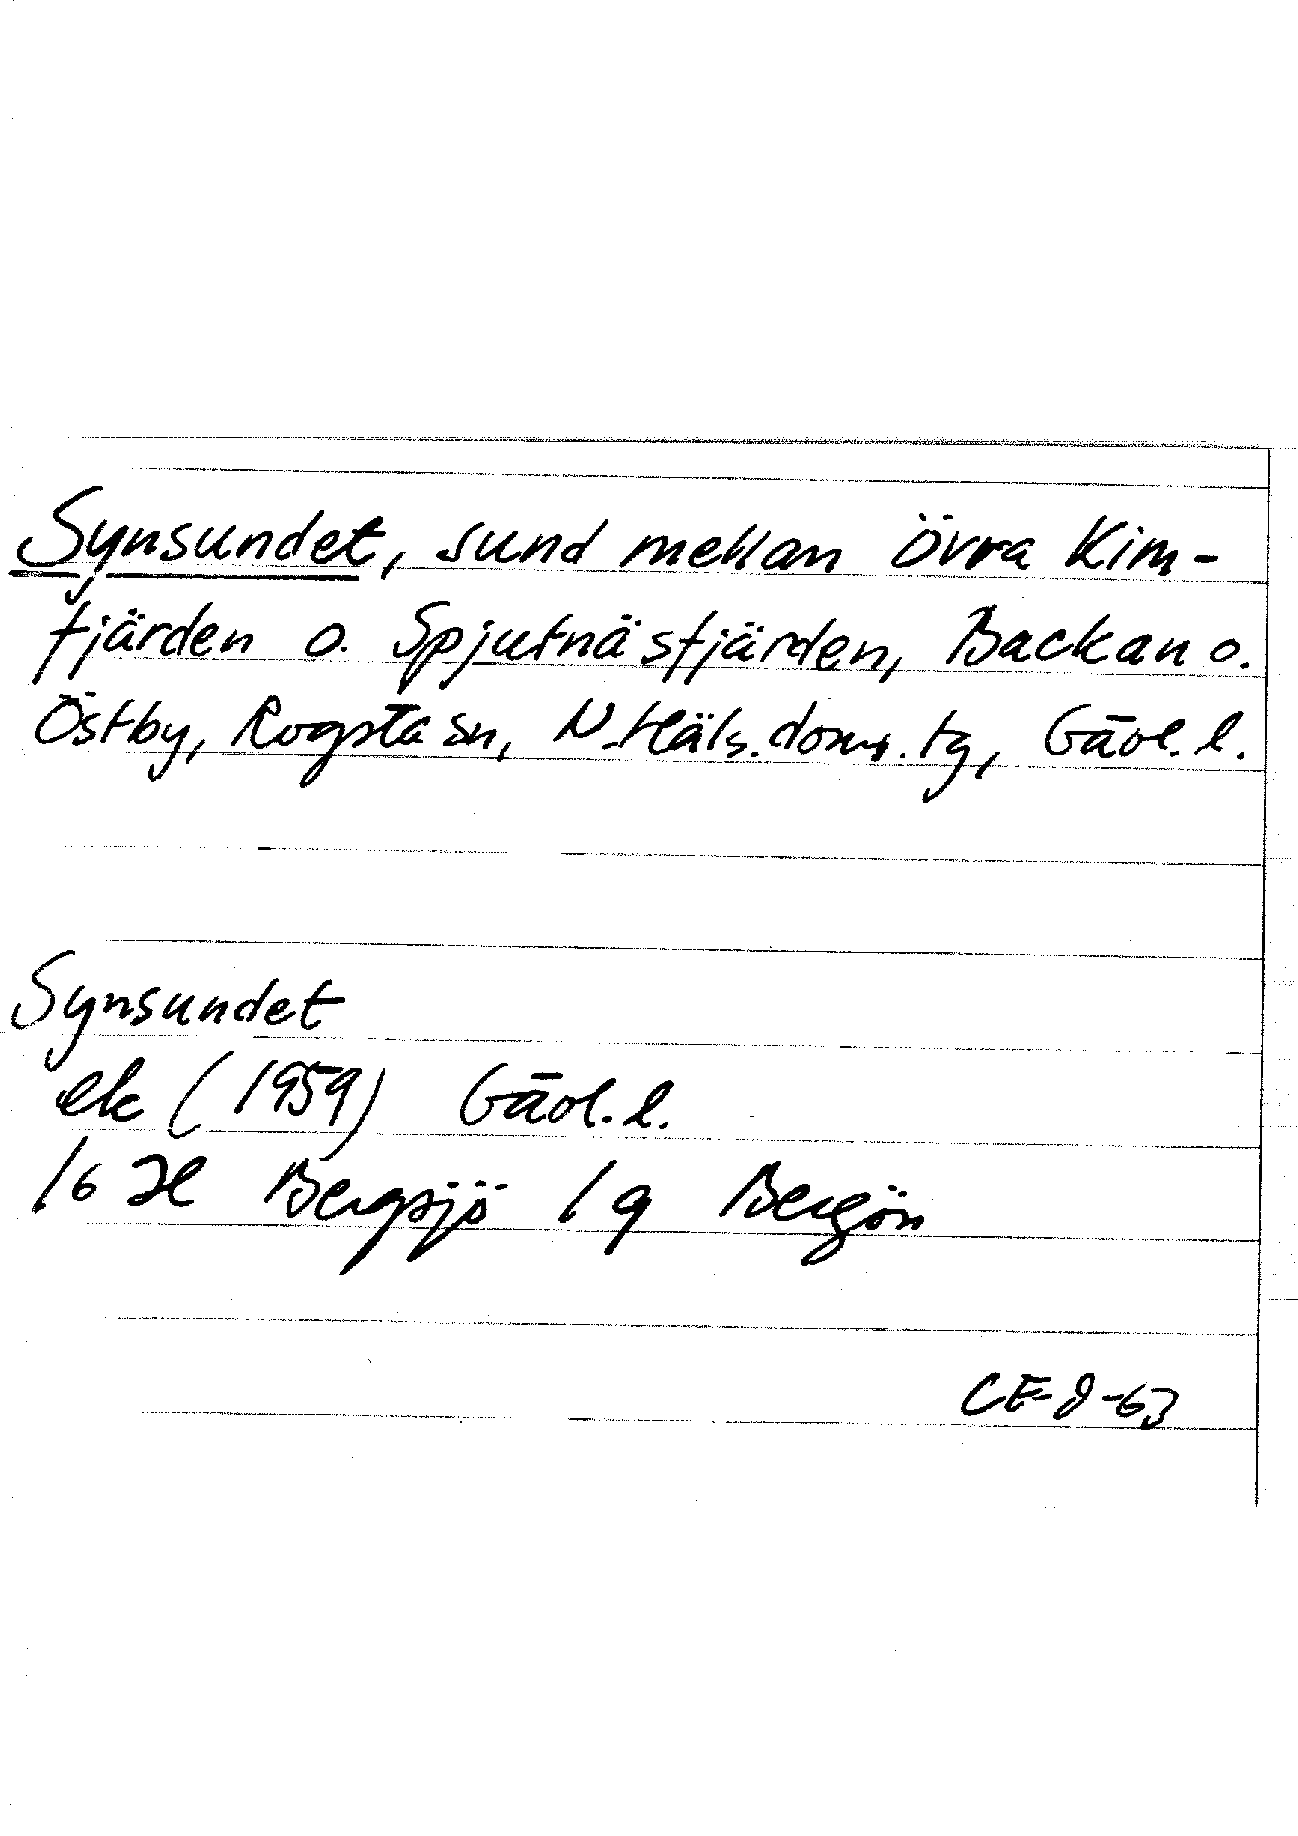 Synsundet, sund mellan Övra Kim-
fjärden o. Spjutnäsfjärden, Backan o.
Östby, Rogsta sn, N. Häls. doms. tg, Gävl. l.
Synsundet
ek (1959) Gävl. l.
16 H Bergsjö 1 g Bergön
CE-8-63